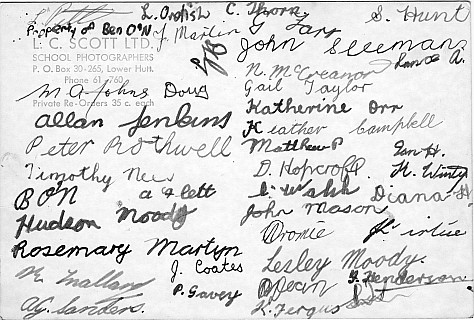 L. Orofish C. Thorn S. Hunt
Property of Ben O'N J. Martin G Tarr
L. C. SCOTT LTD. John Sleeman
SCHOOL PHOTOGRAPHERS
P. O. Box 30-265, Lower Hutt.
Phone 61-760 N. McCreanor
M A Johns Doug Gail Taylor
Private Re-Orders 35 c. each
Katherine Orr
Allan Jenkins Heather Campbell
Peter Rothwell Matthew P Ian H.
Timothy Nees D. Hopcroft H. Winty
BON L. Walsh Diana H
Hudson Moody John Mason
Rosemary Martyn
J. Coates Lesley Moody.
P. Gavey G. Henderson
A.G. Sanders. K. Fergus